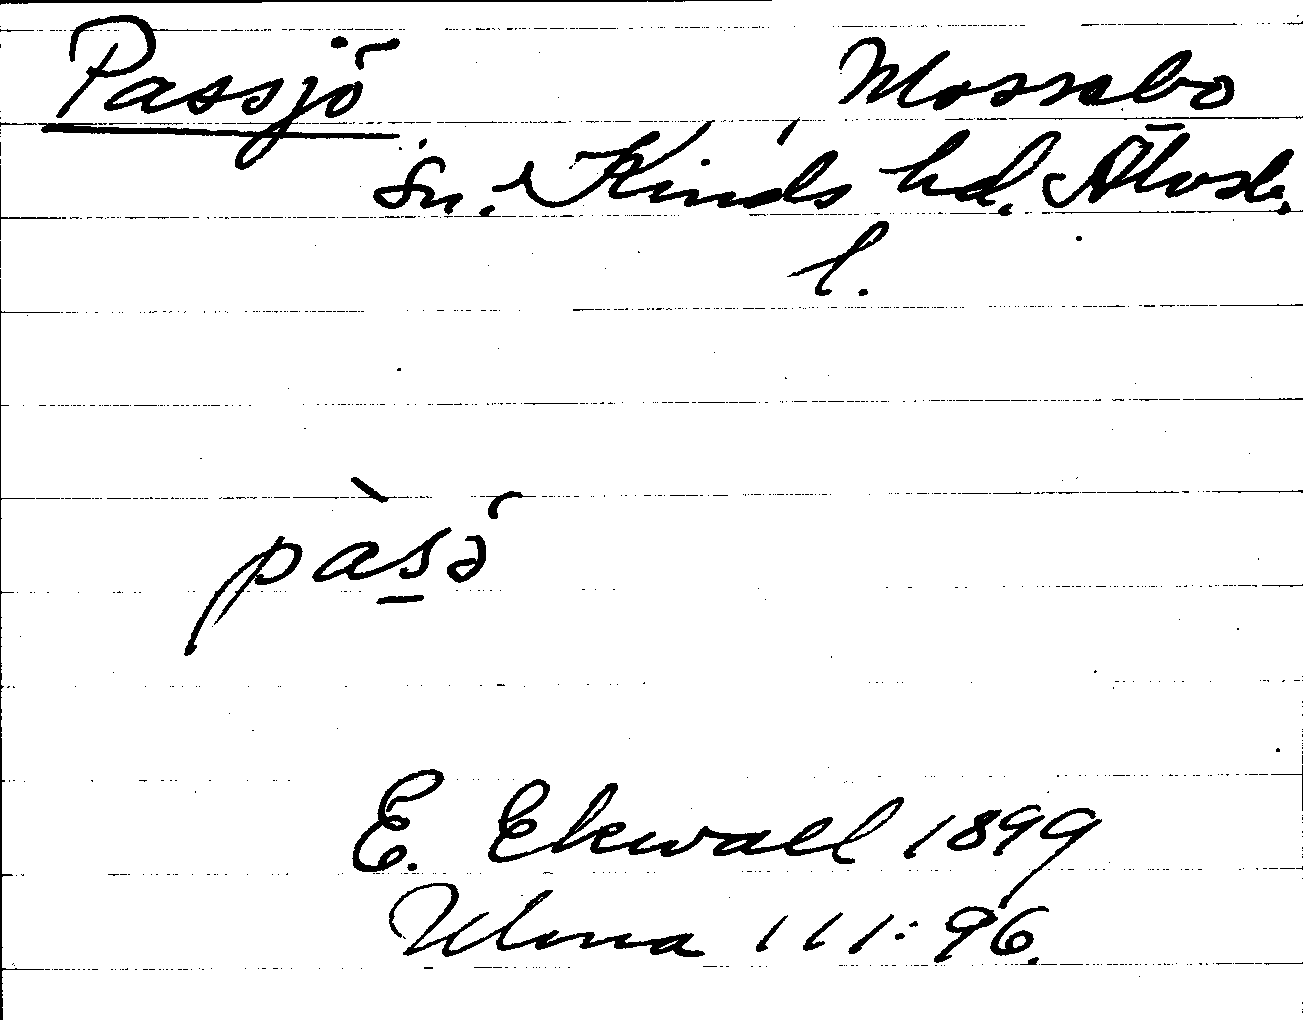 Passjö Mossebo
sn. Kinds hd. Älvsb.
l.
pàsə
E. Ekwall 1899
Ulma 111:96.